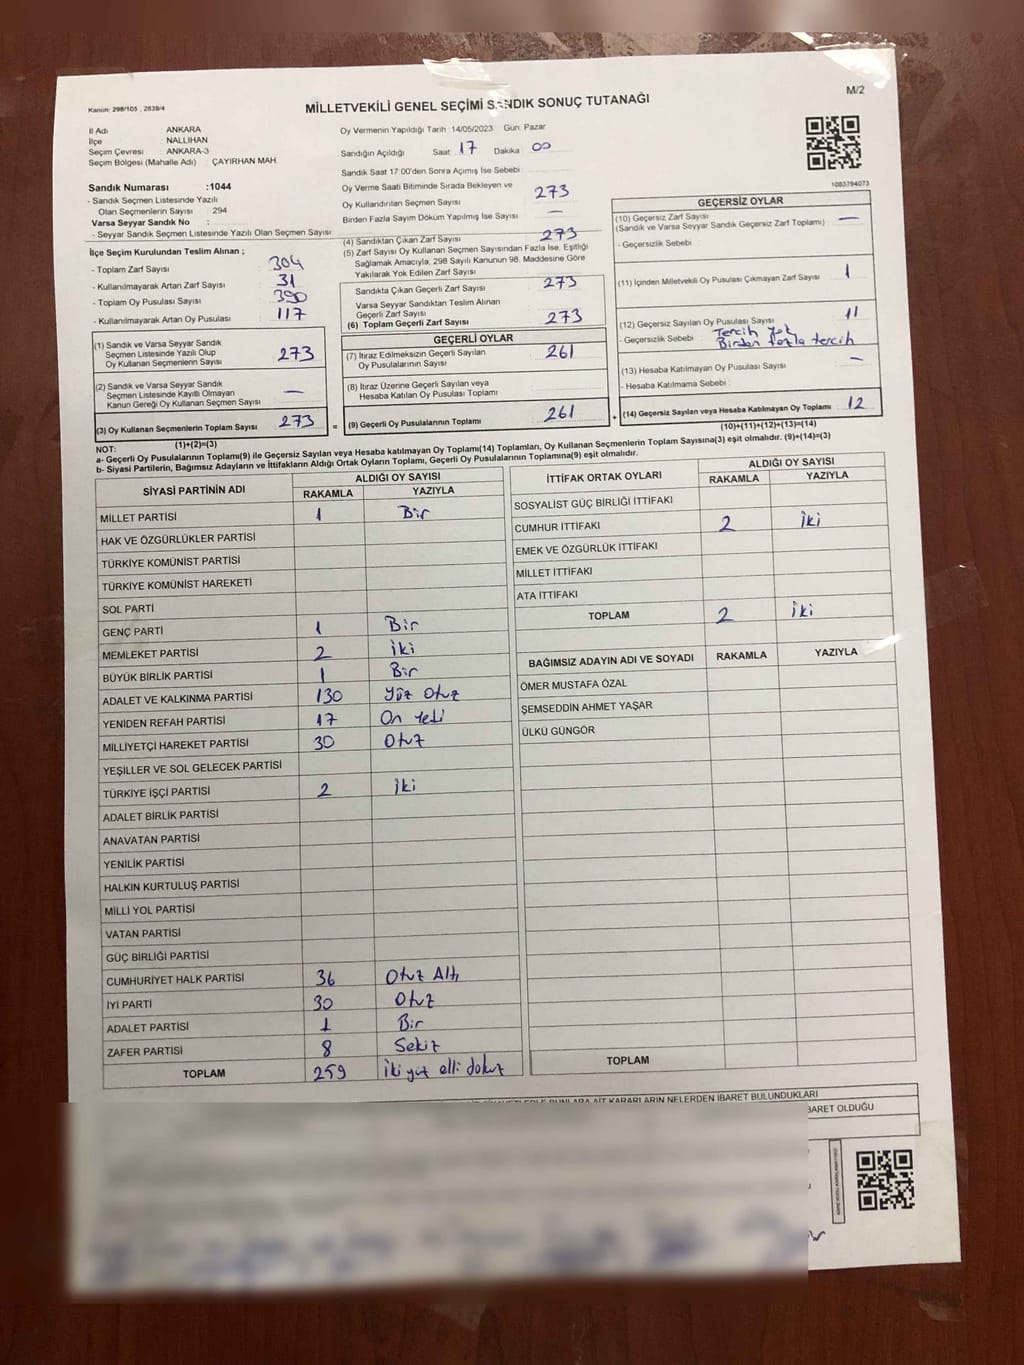 Kanun: 298/105 , 2839/4
MİLLETVEKİLİ GENEL SEÇİMİ SANDIK SONUÇ TUTANAĞI
M/2
İl Adı ANKARA
İlçe NALLIHAN
Seçim Çevresi ANKARA-3
Seçim Bölgesi (Mahalle Adı) : ÇAYIRHAN MAH.
Sandık Numarası :1044
- Sandık Seçmen Listesinde Yazılı
Olan Seçmenlerin Sayısı : 294
Varsa Seyyar Sandık No :
- Seyyar Sandık Seçmen Listesinde Yazılı Olan Seçmen Sayısı :
Oy Vermenin Yapıldığı Tarih 14/05/2023 Gün: Pazar
Sandığın Açıldığı Saat: 17 Dakika 00
Sandık Saat 17:00'den Sonra Açımış İse Sebebi :
Oy Verme Saati Bitiminde Sırada Bekleyen ve
Oy Kullandırılan Seçmen Sayısı 273
Birden Fazla Sayım Döküm Yapılmış İse Sayısı : —
1083794073
İlçe Seçim Kurulundan Teslim Alınan ;
- Toplam Zarf Sayısı : 304
- Kullanılmayarak Artan Zarf Sayısı : 31
- Toplam Oy Pusulası Sayısı : 390
- Kullanılmayarak Artan Oy Pusulası : 117
(1) Sandık ve Varsa Seyyar Sandık
Seçmen Listesinde Yazılı Olup
Oy Kullanan Seçmenlerin Sayısı : 273
(2) Sandık ve Varsa Seyyar Sandık
Seçmen Listesinde Kayıtlı Olmayan
Kanun Gereği Oy Kullanan Seçmen Sayısı : —
(3) Oy Kullanan Seçmenlerin Toplam Sayısı : 273
(1)+(2)=(3)
(4) Sandıktan Çıkan Zarf Sayısı : 273
(5) Zarf Sayısı Oy Kullanan Seçmen Sayısından Fazla İse, Eşitliği
Sağlamak Amacıyla, 298 Sayılı Kanunun 98. Maddesine Göre
Yakılarak Yok Edilen Zarf Sayısı :
Sandıkta Çıkan Geçerli Zarf Sayısı : 273
Varsa Seyyar Sandıktan Teslim Alınan
Geçerli Zarf Sayısı :
(6) Toplam Geçerli Zarf Sayısı : 273
GEÇERLİ OYLAR
(7) İtiraz Edilmeksizin Geçerli Sayılan
Oy Pusulalarının Sayısı : 261
(8) İtiraz Üzerine Geçerli Sayılan veya
Hesaba Katılan Oy Pusulası Toplamı :
= (9) Geçerli Oy Pusulalarının Toplamı : 261 +
GEÇERSİZ OYLAR
(10) Geçersiz Zarf Sayısı : —
(Sandık ve Varsa Seyyar Sandık Geçersiz Zarf Toplamı)
- Geçersizlik Sebebi :
(11) İçinden Milletvekili Oy Pusulası Çıkmayan Zarf Sayısı : 1
(12) Geçersiz Sayılan Oy Pusulası Sayısı : 11
- Geçersizlik Sebebi : Tercih yok
Birden fazla tercih
(13) Hesaba Katılmayan Oy Pusulası Sayısı : —
- Hesaba Katılmama Sebebi :
(14) Geçersiz Sayılan veya Hesaba Katılmayan Oy Toplamı : 12
(10)+(11)+(12)+(13)=(14)
NOT:
a- Geçerli Oy Pusulalarının Toplamı(9) ile Geçersiz Sayılan veya Hesaba katılmayan Oy Toplamı(14) Toplamları, Oy Kullanan Seçmenlerin Toplam Sayısına(3) eşit olmalıdır. (9)+(14)=(3)
b- Siyasi Partilerin, Bağımsız Adayların ve İttifakların Aldığı Ortak Oyların Toplamı, Geçerli Oy Pusulalarının Toplamına(9) eşit olmalıdır.
SİYASİ PARTİNİN ADI ALDIĞI OY SAYISI
RAKAMLA YAZIYLA
MİLLET PARTİSİ 1 Bir
HAK VE ÖZGÜRLÜKLER PARTİSİ
TÜRKİYE KOMÜNİST PARTİSİ
TÜRKİYE KOMÜNİST HAREKETİ
SOL PARTİ
GENÇ PARTİ 1 Bir
MEMLEKET PARTİSİ 2 iki
BÜYÜK BİRLİK PARTİSİ 1 Bir
ADALET VE KALKINMA PARTİSİ 130 Yüz Otuz
YENİDEN REFAH PARTİSİ 17 On Yedi
MİLLİYETÇİ HAREKET PARTİSİ 30 Otuz
YEŞİLLER VE SOL GELECEK PARTİSİ
TÜRKİYE İŞÇİ PARTİSİ 2 iki
ADALET BİRLİK PARTİSİ
ANAVATAN PARTİSİ
YENİLİK PARTİSİ
HALKIN KURTULUŞ PARTİSİ
MİLLİ YOL PARTİSİ
VATAN PARTİSİ
GÜÇ BİRLİĞİ PARTİSİ
CUMHURİYET HALK PARTİSİ 36 Otuz Altı
İYİ PARTİ 30 Otuz
ADALET PARTİSİ 1 Bir
ZAFER PARTİSİ 8 Sekiz
TOPLAM 259 iki yüz elli dokuz
İTTİFAK ORTAK OYLARI ALDIĞI OY SAYISI
RAKAMLA YAZIYLA
SOSYALİST GÜÇ BİRLİĞİ İTTİFAKI
CUMHUR İTTİFAKI 2 iki
EMEK VE ÖZGÜRLÜK İTTİFAKI
MİLLET İTTİFAKI
ATA İTTİFAKI
TOPLAM 2 iki
BAĞIMSIZ ADAYIN ADI VE SOYADI RAKAMLA YAZIYLA
ÖMER MUSTAFA ÖZAL
ŞEMSEDDİN AHMET YAŞAR
ÜLKÜ GÜNGÖR
TOPLAM
KARARLARIN NELERDEN İBARET BULUNDUKLARI
BARET OLDUĞU